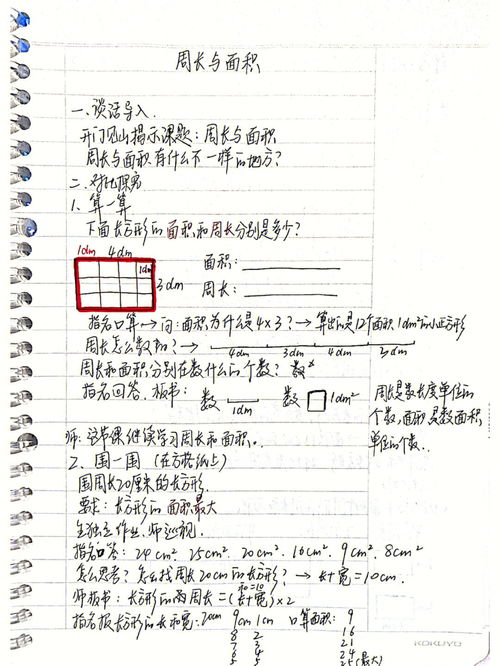 周长与面积
一、谈话导入.
开门见山揭示课题：周长与面积
周长与面积有什么不一样的地方？
二、对比探究
1、算一算
下面长方形的面积和周长分别是多少？
1dm 4dm
1dm²
3dm
面积：
周长：
指名口算→问：面积为什么是4×3？→算出的是12个面积1dm²的小正方形
周长怎么数的？→
4dm 3dm 4dm 3dm
周长和面积分别在数什么的个数？
指名回答.板书：
数 1dm 数 1dm²
周长是数长度单位的
个数，面积是数面积
单位的个数.
师：这节课继续学习周长和面积。
2、围一围（在方格纸上）
围周长20厘米的长方形.
要求：长方形的面积最大
生独立作业.师巡视.
指名口答：24cm². 25cm². 20cm². 16cm². 9cm². 8cm²
怎么思考？怎么找周长20cm的长方形？→长+宽=10cm.
和=10
师板书：长方形的周长=(长+宽)×2
指名报长方形的长和宽：20cm 9cm 1cm 口算面积： 9
8 2 16
7 3 21
6 4 24
5 5 25(最大)
KOKUYO